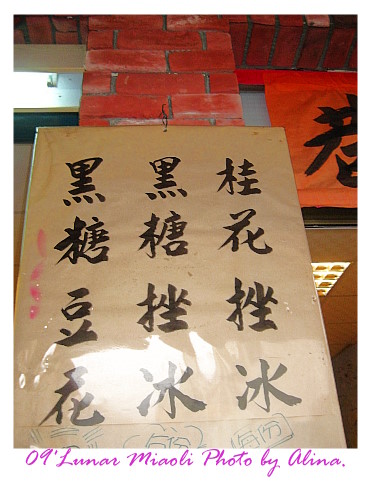 桂花挫冰
黑糖挫冰
黑糖豆花
每份
每份
巷
09'Lunar Miaoli Photo by Alina.